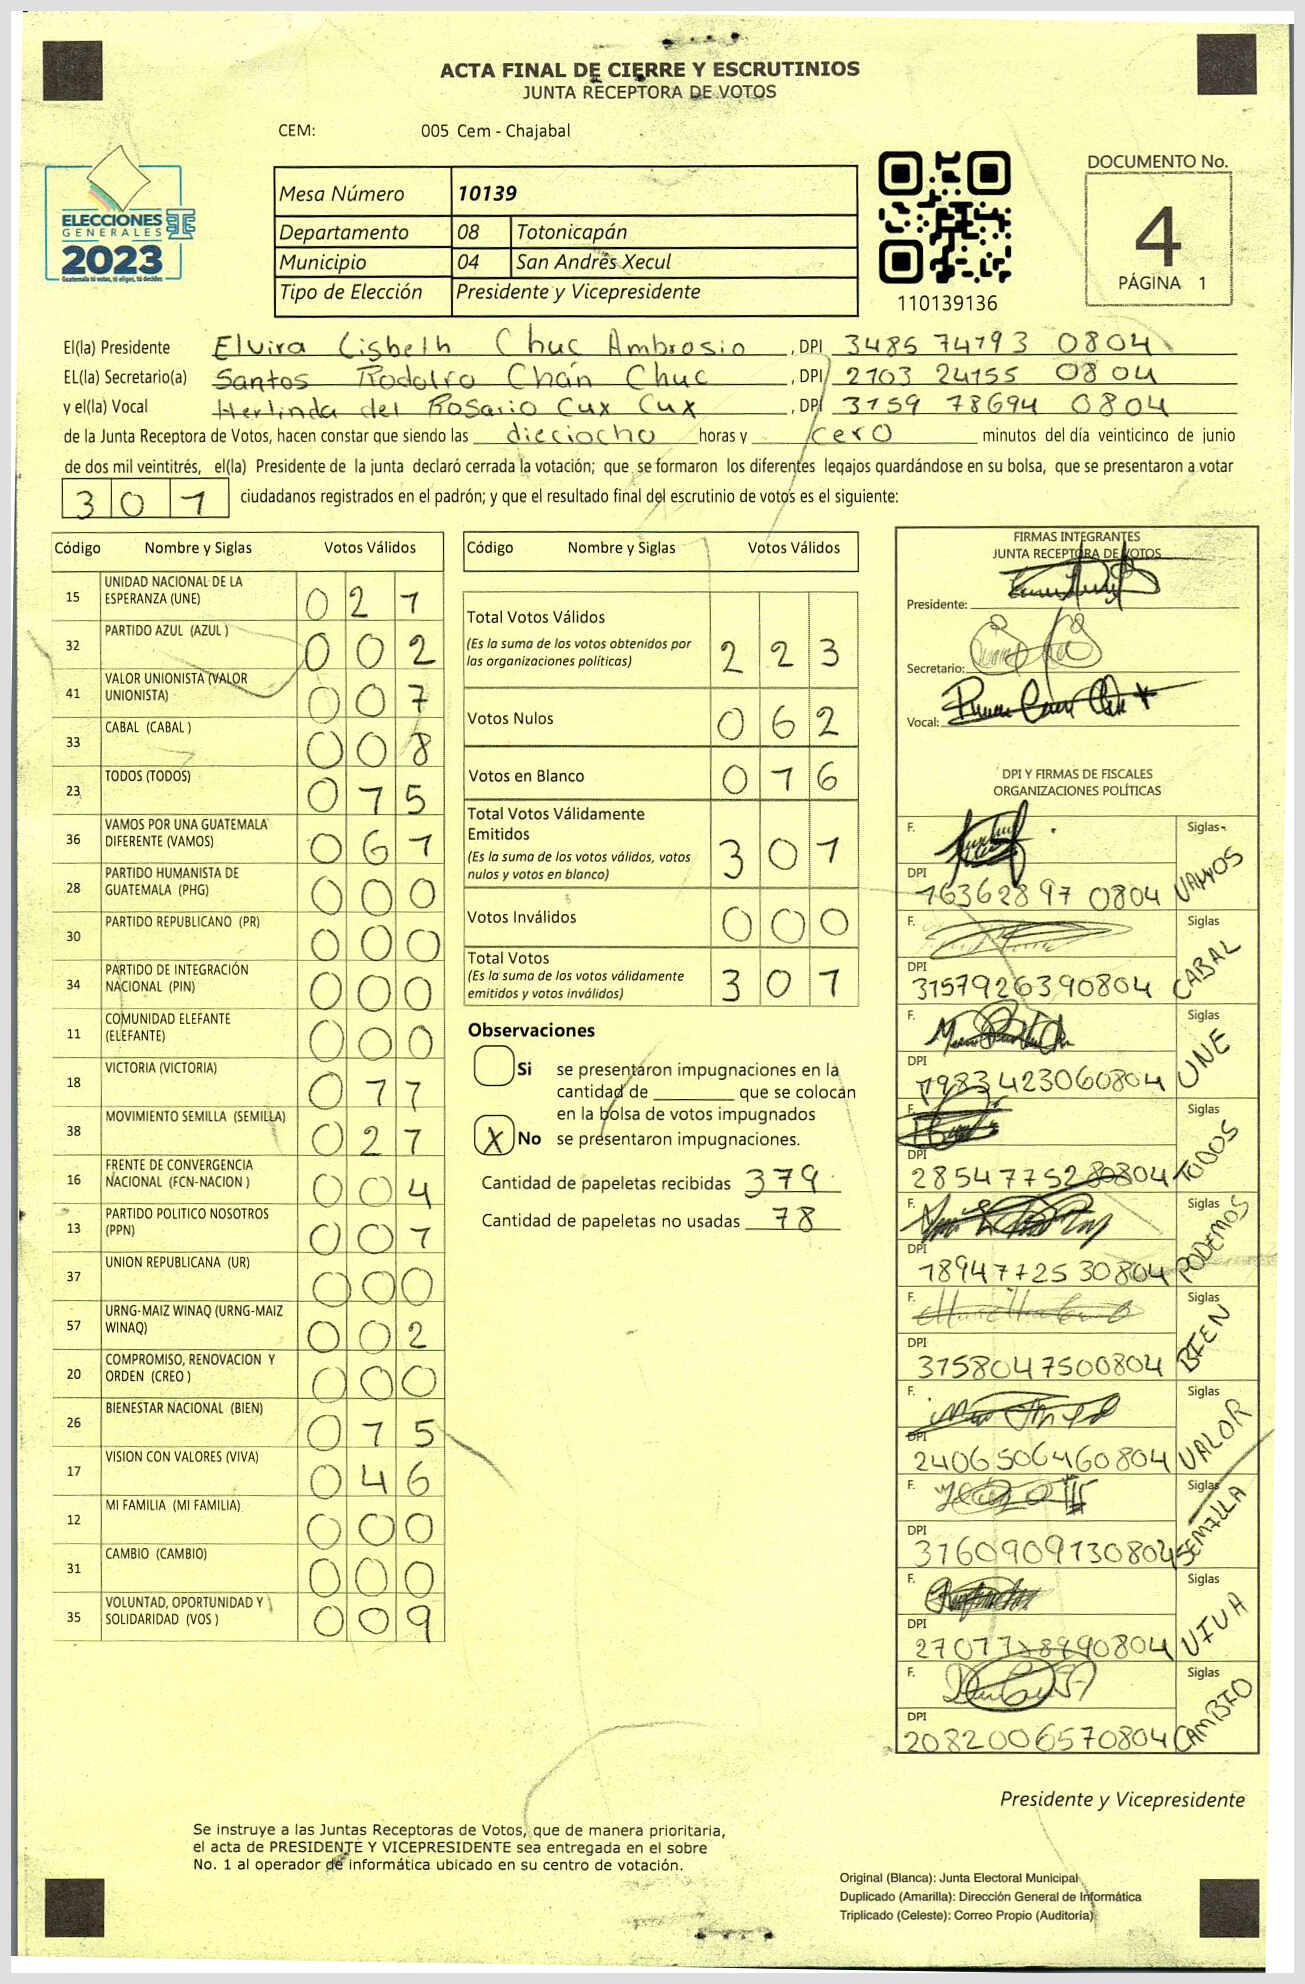 ACTA FINAL DE CIERRE Y ESCRUTINIOS
JUNTA RECEPTORA DE VOTOS
CEM: 005 Cem - Chajabal
ELECCIONES
GENERALES
2023
Guatemala tú votas, tú eliges, tú decides
Mesa Número 10139
Departamento 08 Totonicapán
Municipio 04 San Andrés Xecul
Tipo de Elección Presidente y Vicepresidente
110139136
DOCUMENTO No.
4
PÁGINA 1
El(la) Presidente Elvira Lisbeth Chuc Ambrosio , DPI 3485 74193 0804
EL(la) Secretario(a) Santos Rodolfo Chán Chuc , DPI 2103 24155 0804
y el(la) Vocal Herlinda del Rosario Cux Cux , DPI 3159 78694 0804
de la Junta Receptora de Votos, hacen constar que siendo las dieciocho horas y cero minutos del día veinticinco de junio
de dos mil veintitrés, el(la) Presidente de la junta declaró cerrada la votación; que se formaron los diferentes legajos quardándose en su bolsa, que se presentaron a votar
301 ciudadanos registrados en el padrón; y que el resultado final del escrutinio de votos es el siguiente:
Código Nombre y Siglas Votos Válidos
15 UNIDAD NACIONAL DE LA
ESPERANZA (UNE) 021
32 PARTIDO AZUL (AZUL ) 002
41 VALOR UNIONISTA (VALOR
UNIONISTA) 007
33 CABAL (CABAL ) 008
23 TODOS (TODOS) 015
36 VAMOS POR UNA GUATEMALA
DIFERENTE (VAMOS) 061
28 PARTIDO HUMANISTA DE
GUATEMALA (PHG) 000
30 PARTIDO REPUBLICANO (PR) 000
34 PARTIDO DE INTEGRACIÓN
NACIONAL (PIN) 000
11 COMUNIDAD ELEFANTE
(ELEFANTE) 000
18 VICTORIA (VICTORIA) 011
38 MOVIMIENTO SEMILLA (SEMILLA) 021
16 FRENTE DE CONVERGENCIA
NACIONAL (FCN-NACION ) 004
13 PARTIDO POLITICO NOSOTROS
(PPN) 001
37 UNION REPUBLICANA (UR) 000
57 URNG-MAIZ WINAQ (URNG-MAIZ
WINAQ) 002
20 COMPROMISO, RENOVACION Y
ORDEN (CREO ) 000
26 BIENESTAR NACIONAL (BIEN) 015
17 VISION CON VALORES (VIVA) 046
12 MI FAMILIA (MI FAMILIA) 000
31 CAMBIO (CAMBIO) 000
35 VOLUNTAD, OPORTUNIDAD Y
SOLIDARIDAD (VOS ) 009
Código Nombre y Siglas Votos Válidos
Total Votos Válidos
(Es la suma de los votos obtenidos por
las organizaciones políticas) 223
Votos Nulos 062
Votos en Blanco 016
Total Votos Válidamente
Emitidos
(Es la suma de los votos válidos, votos
nulos y votos en blanco) 301
Votos Inválidos 000
Total Votos
(Es la suma de los votos válidamente
emitidos y votos inválidos) 301
Observaciones
Si se presentaron impugnaciones en la
cantidad de ________ que se colocan
en la bolsa de votos impugnados
X No se presentaron impugnaciones.
Cantidad de papeletas recibidas 379
Cantidad de papeletas no usadas 78
FIRMAS INTEGRANTES
JUNTA RECEPTORA DE VOTOS
Presidente:
Secretario:
Vocal:
DPI Y FIRMAS DE FISCALES
ORGANIZACIONES POLÍTICAS
F. Siglas VAMOS
DPI 16362897 0804
F. Siglas CABAL
DPI 3157926390804
F. Siglas UNE
DPI 1983423060804
F. Siglas TODOS
DPI 2854775280804
F. Siglas PODEMOS
DPI 1894772530804
F. Siglas BIEN
DPI 3158047500804
F. Siglas VALOR
DPI 2406506460804
F. Siglas SEMILLA
DPI 3160909130804
F. Siglas VIVA
DPI
F. Siglas CAMBIO
DPI 2082006570804
Presidente y Vicepresidente
Se instruye a las Juntas Receptoras de Votos, que de manera prioritaria,
el acta de PRESIDENTE Y VICEPRESIDENTE sea entregada en el sobre
No. 1 al operador de informática ubicado en su centro de votación.
Original (Blanca): Junta Electoral Municipal
Duplicado (Amarilla): Dirección General de Informática
Triplicado (Celeste): Correo Propio (Auditoría)